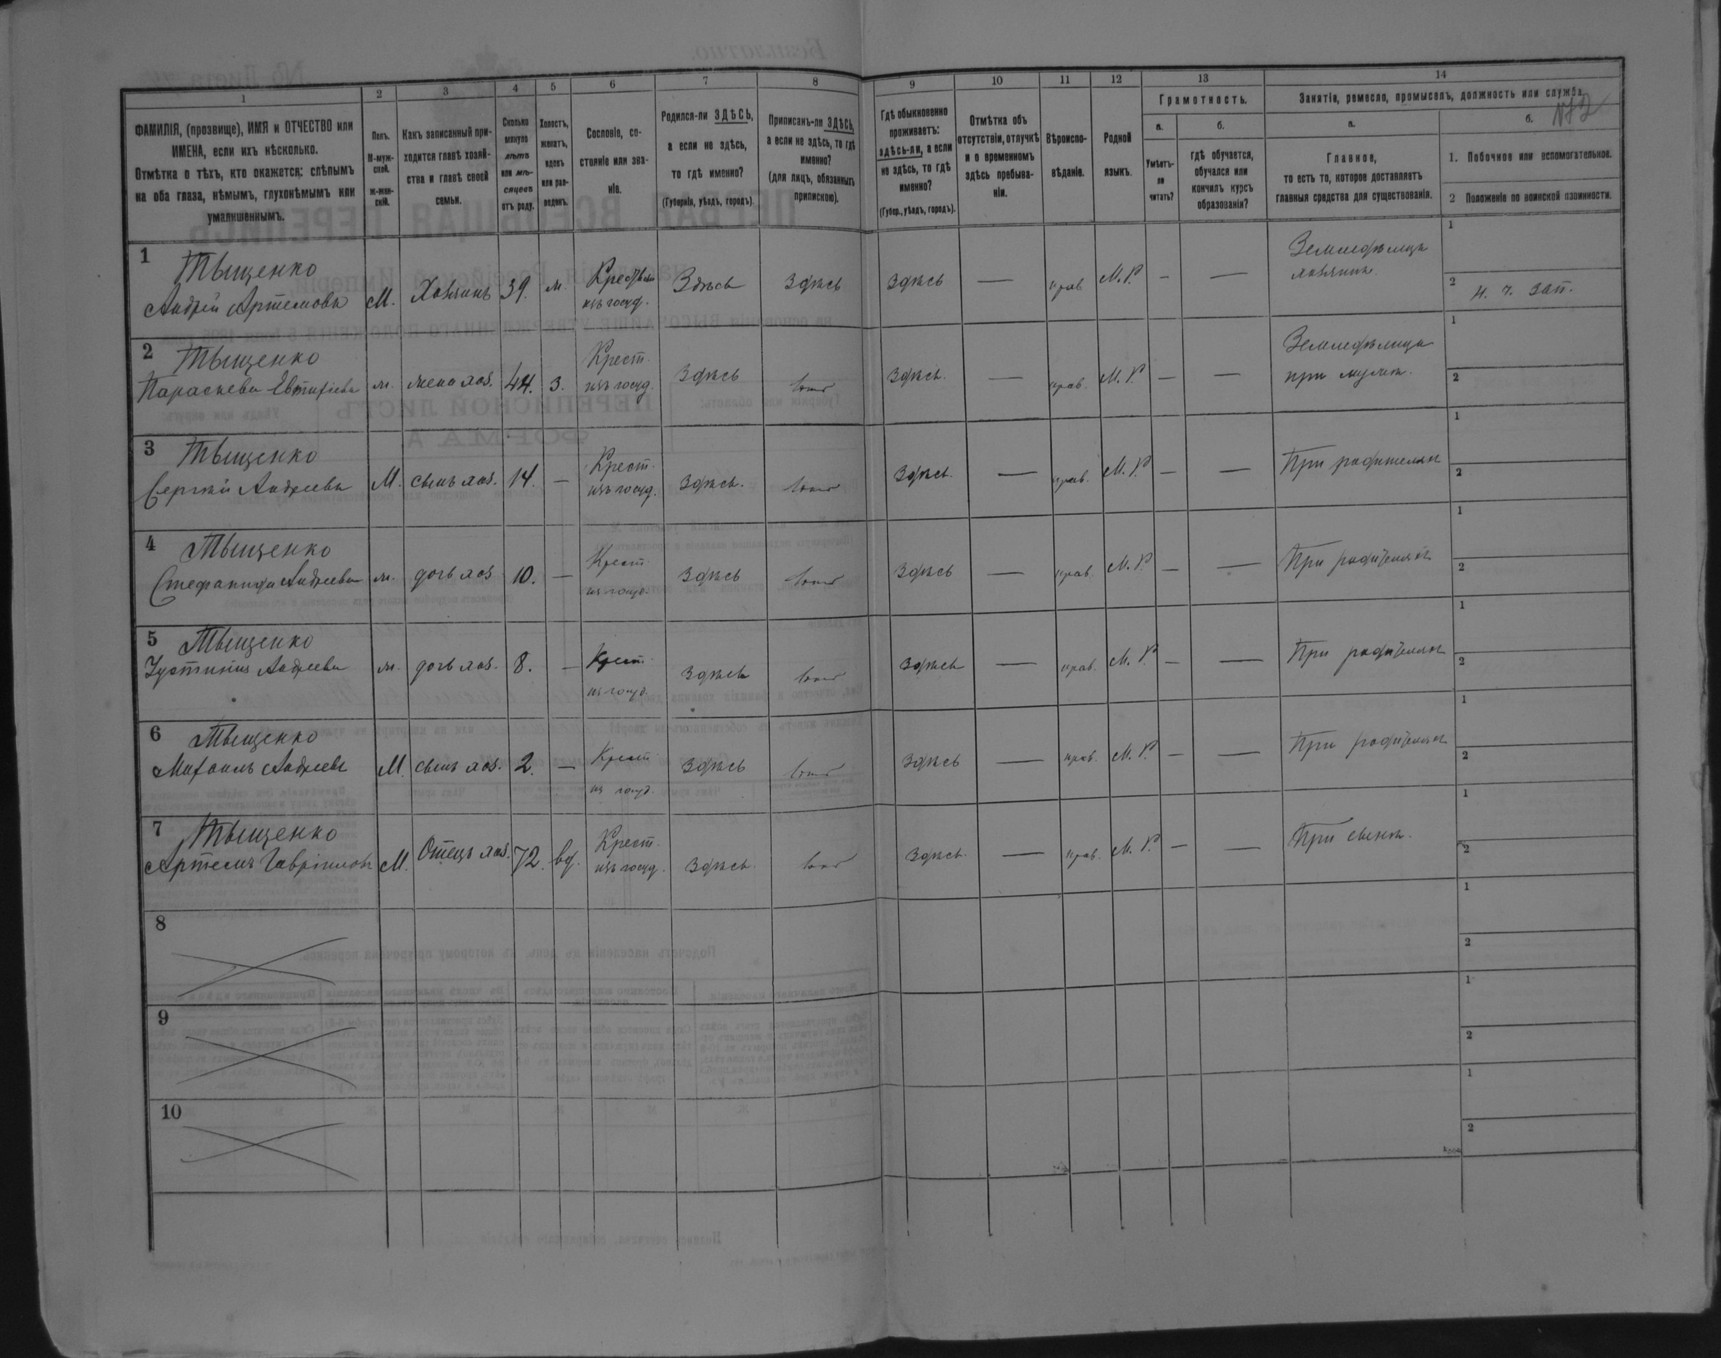 1 2 3 4 5 6 7 8 9 10 11 12 13 14
ФАМИЛІЯ, (прозвище), ИМЯ и ОТЧЕСТВО или
ИМЕНА, если ихъ нѣсколько.
Отмѣтка о тѣхъ, кто окажется: слѣпымъ
на оба глаза, нѣмымъ, глухонѣмымъ или
умалишеннымъ.
Полъ.
М-муж-
ской.
Ж-жен-
скій.
Какъ записанный при-
ходится главѣ хозяй-
ства и главѣ своей
семьи.
Сколько
минуло
лѣтъ
или мѣ-
сяцевъ
отъ роду.
Холостъ,
женатъ,
вдовъ
или раз-
веденъ.
Сословіе, со-
стояніе или зва-
ніе.
Родился-ли ЗДѢСЬ,
а если не здѣсь,
то гдѣ именно?
(Губернія, уѣздъ, городъ).
Приписанъ-ли ЗДѢСЬ,
а если не здѣсь, то гдѣ
именно?
(для лицъ, обязанныхъ
припискою).
Гдѣ обыкновенно
проживаетъ:
здѣсь-ли, а если
не здѣсь, то гдѣ
именно?
(Губер., уѣздъ, городъ).
Отмѣтка объ
отсутствіи, отлучкѣ
и о временномъ
здѣсь пребыва-
ніи.
Вѣроиспо-
вѣданіе.
Родной
языкъ.
Грамотность.
а.
Умѣетъ-
ли
читать?
б.
гдѣ обучается,
обучался или
кончилъ курсъ
образованія?
Занятіе, ремесло, промыселъ, должность или служба.
а.
Главное,
то есть то, которое доставляетъ
главныя средства для существованія.
б.
1. Побочное или вспомогательное.
2 Положеніе по воинской повинности.
1 Тыщенко
Андрей Артемовъ М. Хозяинъ 39. ж. Крестьян. изъ госуд. Здѣсь Здѣсь Здѣсь — прав. М. Р. — — Земледѣлецъ хозяинъ
1
2 н. ч. зап.
2 Тыщенко
Параскева Евтихіева ж. жена хоз. 44. з. Крест. изъ госуд. Здѣсь Здѣсь — прав. М. Р. — — Земледѣлица при мужѣ.
1
2
3 Тыщенко
Сергѣй Андреевъ М. сынъ хоз. 14. — Крест. изъ госуд. Здѣсь. Здѣсь. — прав. М. Р. — — При родителяхъ
1
2
4 Тыщенко
Стефанида Андреева ж. дочь хоз 10. — Крест. из госуд. Здѣсь Здѣсь — прав. М. Р. — — При родителяхъ
1
2
5 Тыщенко
Іустинія Андреева ж. дочь хоз. 8. — Крест. из госуд. Здѣсь Здѣсь — прав. М. Р. — — При родителяхъ
1
2
6 Тыщенко
Михаилъ Андреевъ М. сынъ хоз. 2. — Крест. из госуд. Здѣсь Здѣсь — прав. М. Р. — — При родителяхъ
1
2
7 Тыщенко
Артемъ Гавріиловъ М. Отецъ хоз. 72. вд. Крест. изъ госуд. Здѣсь. Здѣсь. — прав. М. Р. — — При сынѣ.
1
2
8
1
2
9
1
2
10
1
2